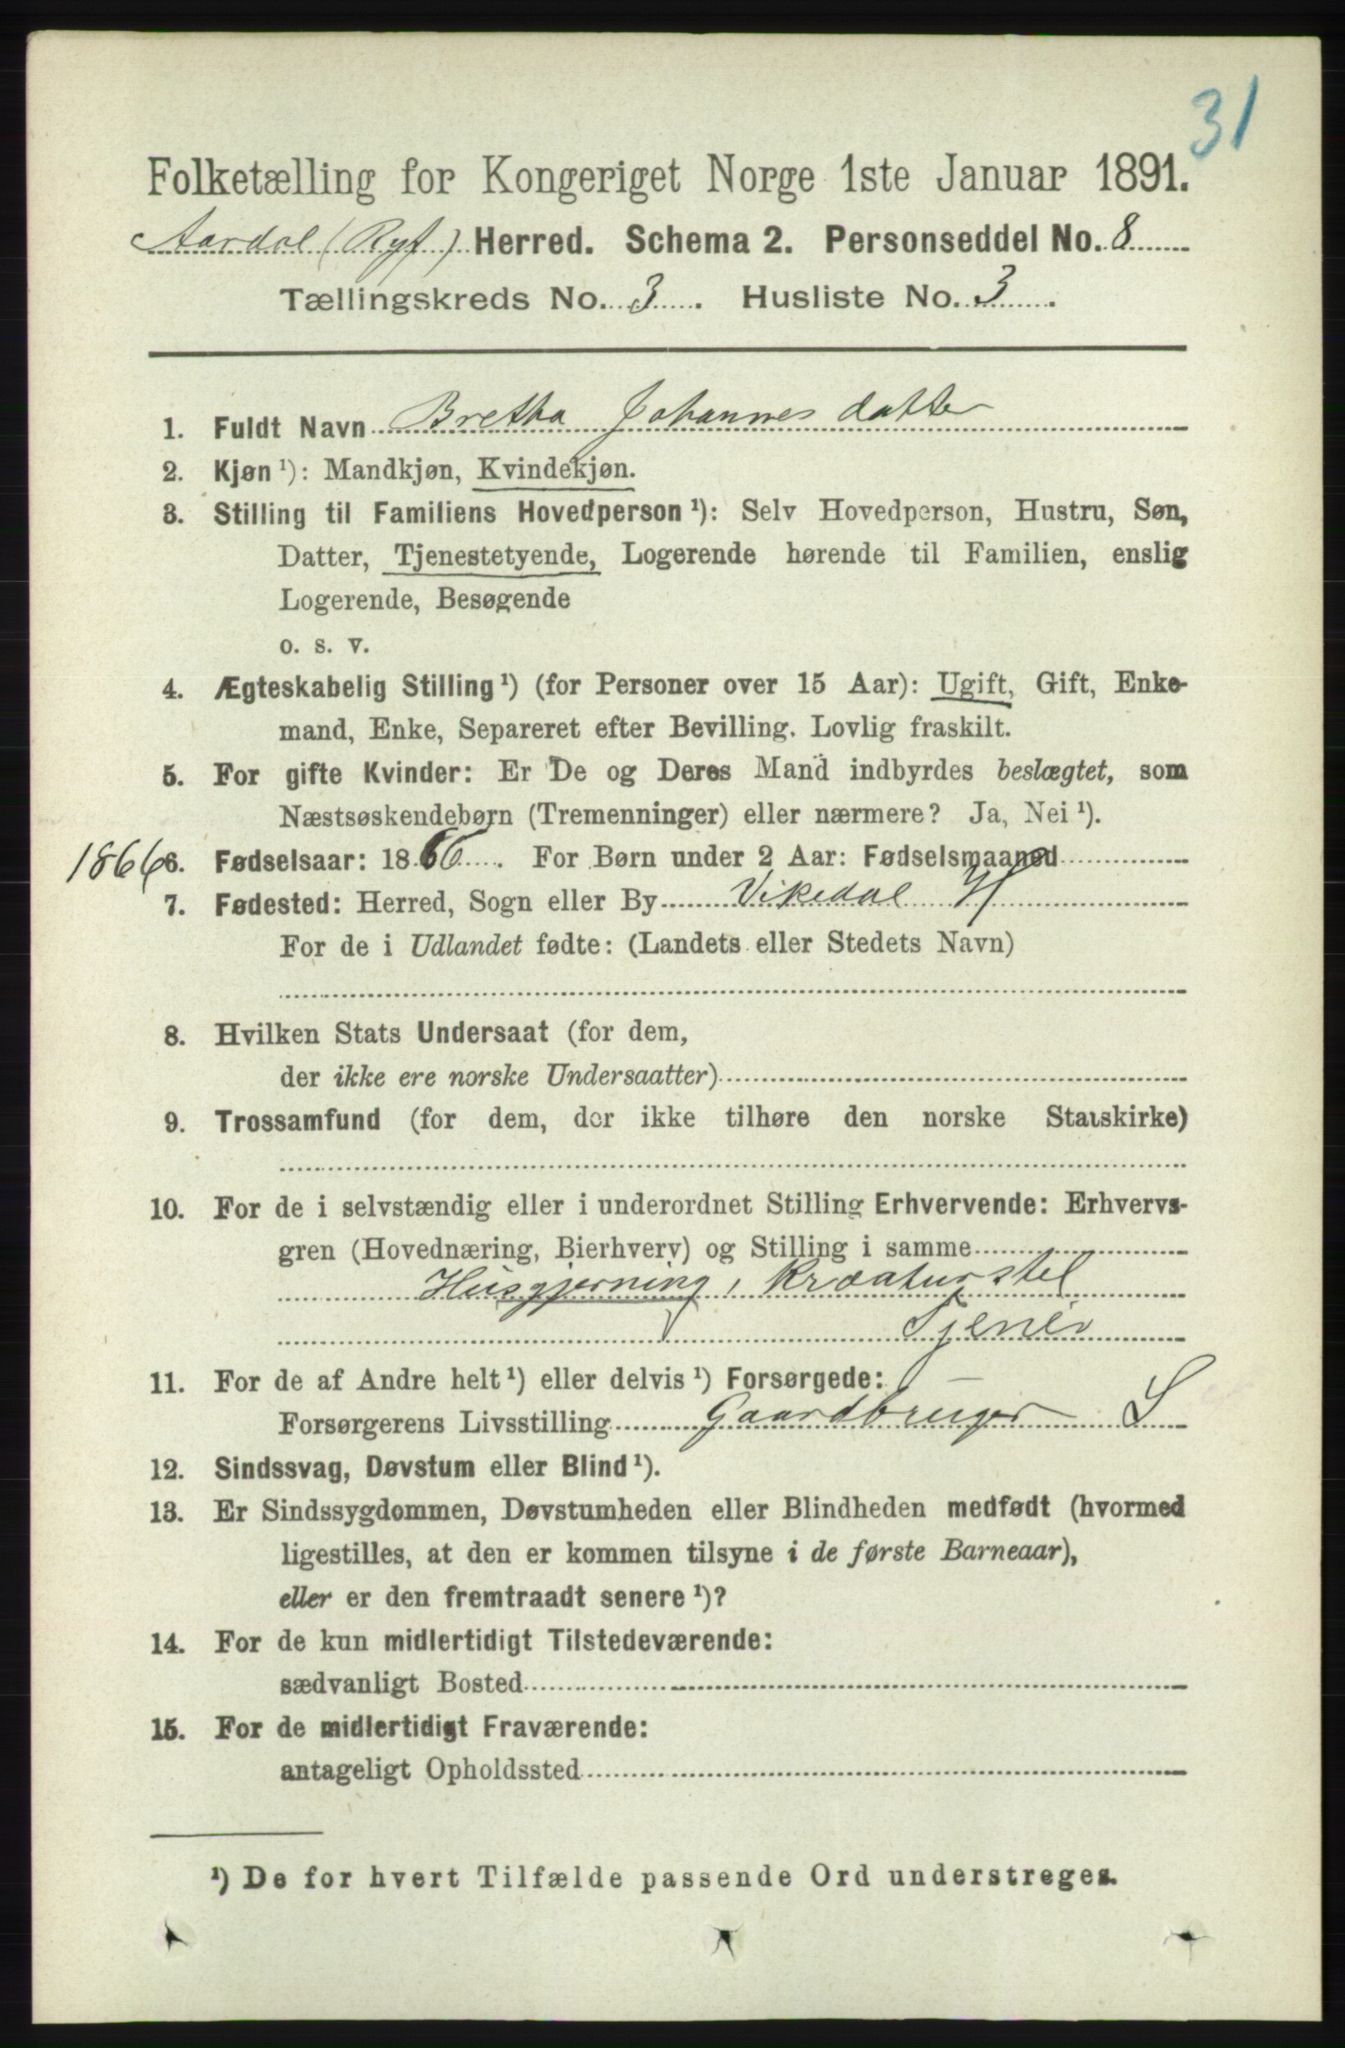 31
Folketælling for Kongeriget Norge 1ste Januar 1891.
Aardal (Ryf) Herred. Schema 2. Personseddel No. 8
Tællingskreds No. 3. Husliste No. 3.
1. Fuldt Navn Bretha Johannesdatter
2. Kjøn ¹): Mandkjøn, Kvindekjøn.
3. Stilling til Familiens Hovedperson ¹): Selv Hovedperson, Hustru, Søn,
Datter, Tjenestetyende, Logerende hørende til Familien, enslig
Logerende, Besøgende
o. s. v.
4. Ægteskabelig Stilling ¹) (for Personer over 15 Aar): Ugift, Gift, Enke-
mand, Enke, Separeret efter Bevilling. Lovlig fraskilt.
5. For gifte Kvinder: Er De og Deres Mand indbyrdes beslægtet, som
Næstsøskendebørn (Tremenninger) eller nærmere? Ja, Nei ¹).
1866 6. Fødselsaar: 1866. For Børn under 2 Aar: Fødselsmaaned
7. Fødested: Herred, Sogn eller By Vikedal H
For de i Udlandet fødte: (Landets eller Stedets Navn)
8. Hvilken Stats Undersaat (for dem,
der ikke ere norske Undersaatter)
9. Trossamfund (for dem, der ikke tilhøre den norske Statskirke)
10. For de i selvstændig eller i underordnet Stilling Erhvervende: Erhvervs-
gren (Hovednæring, Bierhverv) og Stilling i samme
Husgjerning, Kræaturstel
Tjener
11. For de af Andre helt ¹) eller delvis ¹) Forsørgede:
Forsørgerens Livsstilling Gaardbruger S
12. Sindssvag, Døvstum eller Blind ¹).
13. Er Sindssygdommen, Døvstumheden eller Blindheden medfødt (hvormed
ligestilles, at den er kommen tilsyne i de første Barneaar),
eller er den fremtraadt senere ¹)?
14. For de kun midlertidigt Tilstedeværende:
sædvanligt Bosted
15. For de midlertidigt Fraværende:
antageligt Opholdssted
¹) De for hvert Tilfælde passende Ord understreges.